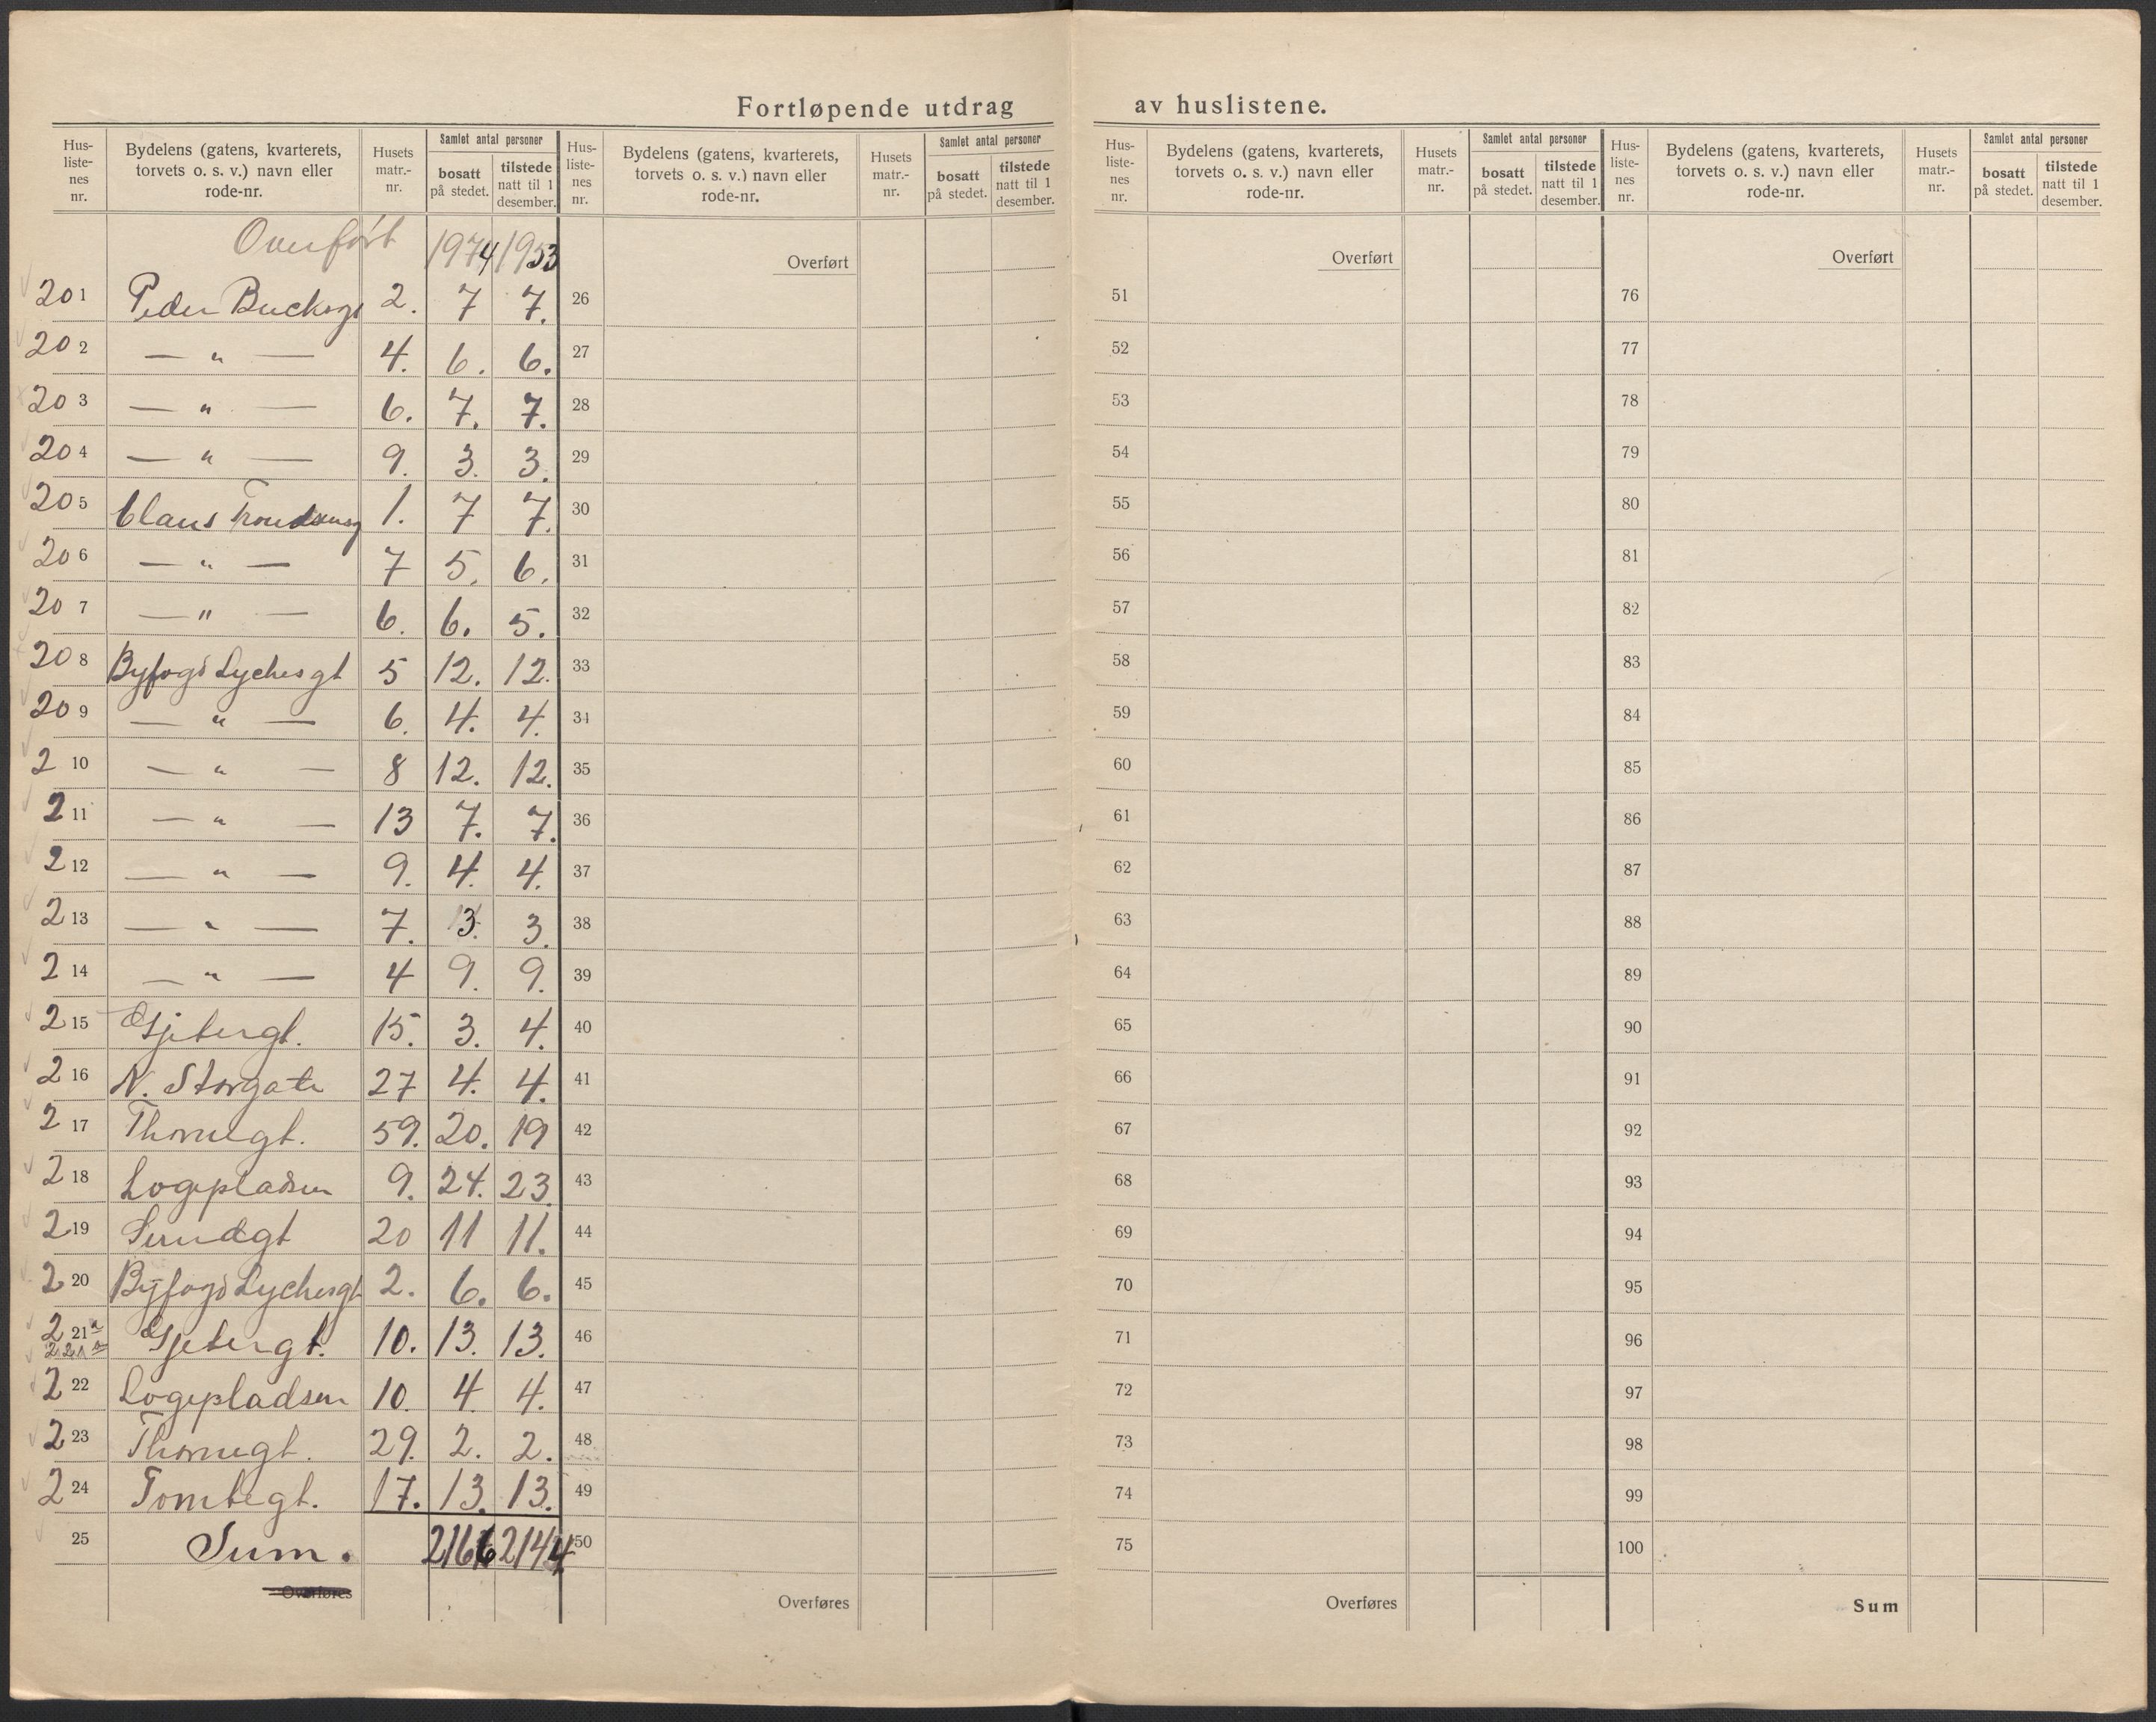 Fortløpende utdrag av huslistene.
Hus-liste-nes nr. | Bydelens (gatens, kvarterets, torvets o. s. v.) navn eller rode-nr. | Husets matr.-nr. | Samlet antal personer bosatt på stedet. | tilstede natt til 1 desember.
Overført 1974 1953
201 Peder Bucksgt 2. 7 7.
202 — " — 4. 6. 6.
203 — " — 6. 7. 7.
204 — " — 9. 3. 3.
205 Claus Trondsensg 1. 7 7.
206 — " — 7 5. 6.
207 — " — 6. 6. 5.
208 Byfogd Lychesgt 5 12. 12.
209 — " — 6. 4. 4.
210 — " — 8 12. 12.
211 — " — 13 7. 7.
212 — " — 9. 4. 4.
213 — " — 7. 3. 3.
214 — " — 4 9. 9.
215 Gjetergt. 15. 3. 4.
216 N. Storgate 27 4. 4.
217 Thornegt. 59. 20. 19
218 Logepladsen 9. 24. 23
219 Sundgt 20 11 11.
220 Byfogd Lychesgt 2. 6. 6.
221a 221b Gjetergt. 10. 13. 13.
222 Logepladsen 10. 4. 4.
223 Thornegt. 29. 2. 2.
224 Tombegt. 17. 13. 13.
25 Sum. 2166 2144
Overføres
Hus-liste-nes nr. | Bydelens (gatens, kvarterets, torvets o. s. v.) navn eller rode-nr. | Husets matr.-nr. | Samlet antal personer bosatt på stedet. | tilstede natt til 1 desember.
Overført
26
27
28
29
30
31
32
33
34
35
36
37
38
39
40
41
42
43
44
45
46
47
48
49
50
Overføres
Hus-liste-nes nr. | Bydelens (gatens, kvarterets, torvets o. s. v.) navn eller rode-nr. | Husets matr.-nr. | Samlet antal personer bosatt på stedet. | tilstede natt til 1 desember.
Overført
51
52
53
54
55
56
57
58
59
60
61
62
63
64
65
66
67
68
69
70
71
72
73
74
75
Overføres
Hus-liste-nes nr. | Bydelens (gatens, kvarterets, torvets o. s. v.) navn eller rode-nr. | Husets matr.-nr. | Samlet antal personer bosatt på stedet. | tilstede natt til 1 desember.
Overført
76
77
78
79
80
81
82
83
84
85
86
87
88
89
90
91
92
93
94
95
96
97
98
99
100
Sum